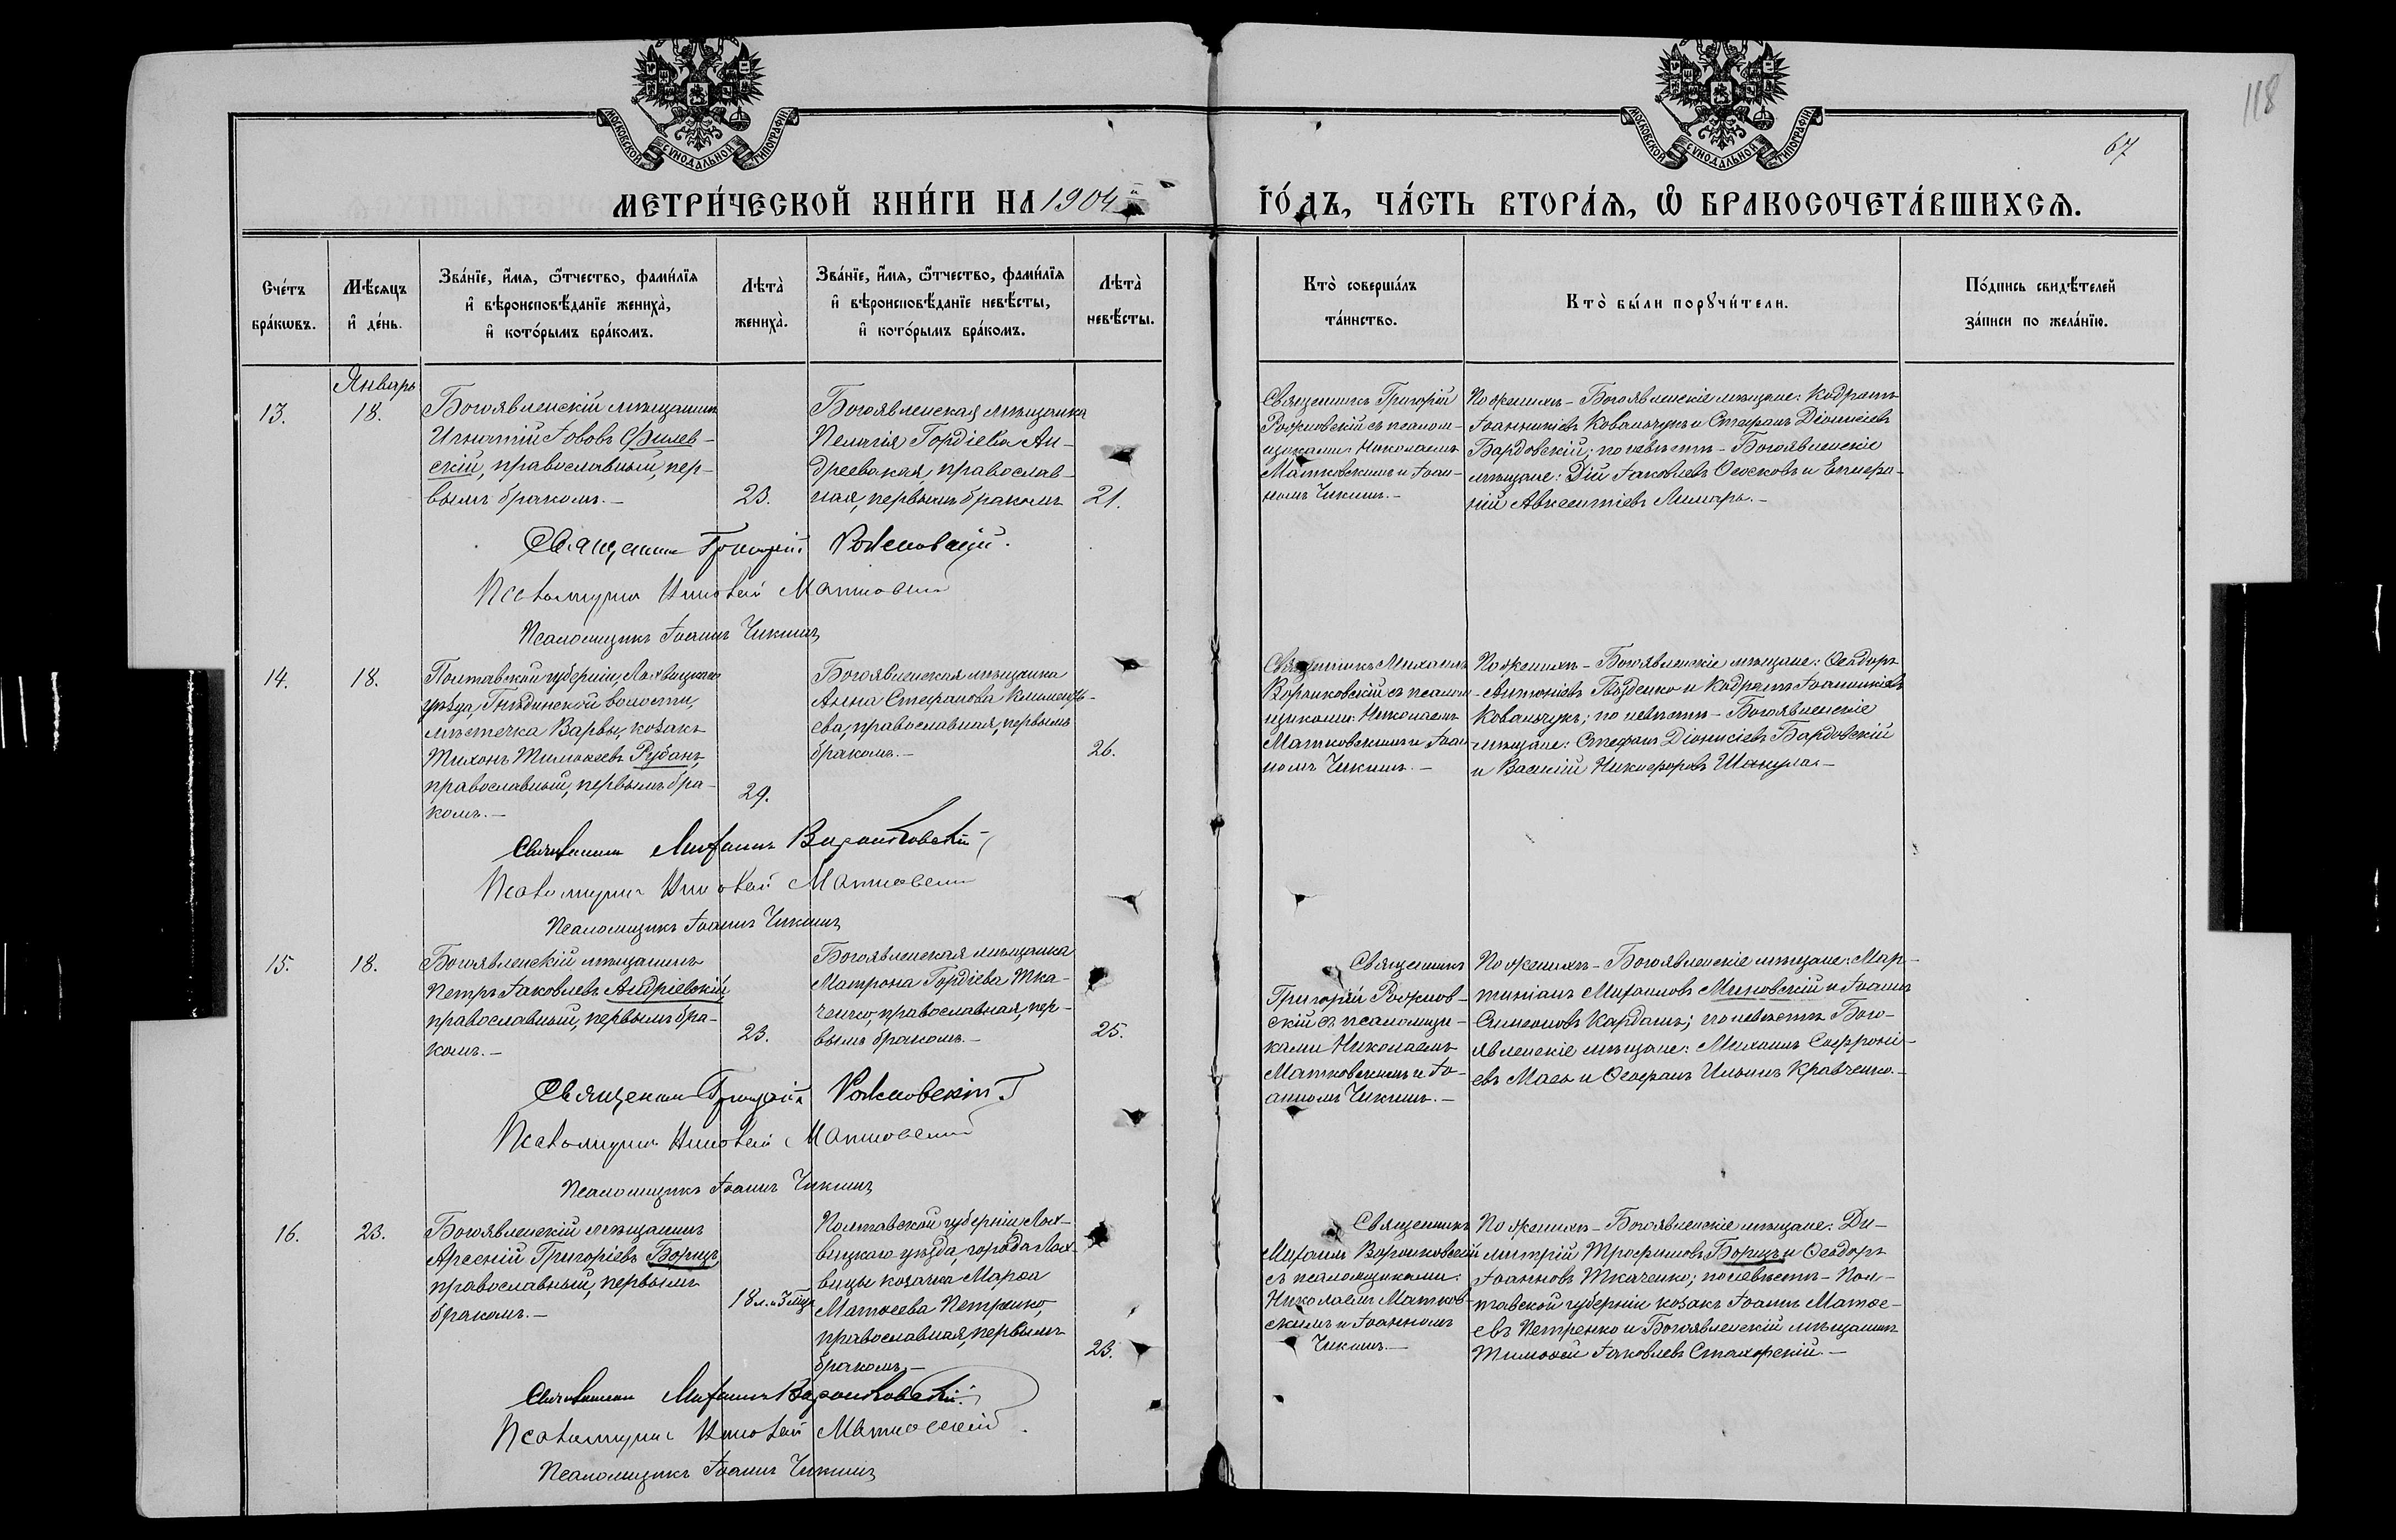 118
67
МОСКОВСКОЙ СѴНОДАЛЬНОЙ ТИПОГРАФІИ
МОСКОВСКОЙ СѴНОДАЛЬНОЙ ТИПОГРАФІИ
МЕТРИ́ЧЕСКОЙ КНИ́ГИ НА 1904й
ГО́ДЪ, ЧА́СТЬ ВТОРА́Ѧ, Ѽ БРАКОСОЧЕТА́ВШИХСѦ.
Сче́тъ
бра́кѡвъ.
Мѣ́сяцъ
и҆ де́нь.
Зва́нїе, и҆́мя, ѻ҆́тчество, фами́лїя
и҆ вѣроисповѣ́данїе жениха̀,
и҆ кото́рымъ бра́комъ.
Лѣта̀
жениха̀.
Зва́нїе, и҆́мя, ѻ҆́тчество, фами́лїя
и҆ вѣроисповѣ́данїе невѣ́сты,
и҆ кото́рымъ бра́комъ.
Лѣта̀
невѣ́сты.
Кто̀ соверша́лъ
та́инство.
Кто̀ бы́ли порꙋчи́тели.
По́дпись свидѣ́телей
за́писи по жела́нїю.
Январь
13.
18.
Богоявленскій мѣщанинъ
Игнатій Іововъ Филев-
скій, православный, пер-
вымъ бракомъ.—
23.
Богоявленская мѣщанка
Пелагія Гордіева Ан-
дреевская, православ-
ная, первымъ бракомъ
21.
Священникъ Григорій
Рожновскій съ псалом-
щиками Николаемъ
Матковскимъ и Іоан-
номъ Чикинъ.—
По женихѣ – Богоявленскіе мѣщане: Кодратъ
Іоанникіевъ Ковальчукъ и Стефанъ Діонисіевъ
Бардовскій; по невѣстѣ – Богоявленскіе
мѣщане: Дій Іаковлевъ Осъсковъ и Епифа-
ній Авксентіевъ Лимарь.—
Священникъ Григорій Рожновскій.
Псаломщикъ Николай Матковскій
Псаломщикъ Іоаннъ Чикинъ
14.
18.
Полтавской губерніи, Лохвицкаго
уѣзда, Гнѣдинской волости,
мѣстечка Варвы, козакъ
Тихонъ Тимоѳеевъ Рубанъ,
православный, первымъ бра-
комъ.—
29.
Богоявленская мѣщанка
Анна Стефанова Клименть-
ева, православная, первымъ
бракомъ.—
26.
Священникъ Михаилъ
Воронковскій съ псалом-
щиками: Николаемъ
Матковскимъ и Іоан-
номъ Чикинъ.—
По женихѣ – Богоявленскіе мѣщане: Ѳеодоръ
Антоніевъ Гвозденко и Кодратъ Іоанникіевъ
Ковальчукъ; по невѣстѣ – Богоявленскіе
мѣщане: Стефанъ Діонисіевъ Бардовскій
и Василій Никифоровъ Шакула—
Священникъ Михаилъ Воронковскій
Псаломщикъ Николай Матковскій
Псаломщикъ Іоаннъ Чикинъ
15.
18.
Богоявленскій мѣщанинъ
Петръ Іаковлевъ Андріевскій,
православный, первымъ бра-
комъ.—
23.
Богоявленская мѣщанка
Матрона Гордіева Тка-
ченко, православная, пер-
вымъ бракомъ.—
25.
Священникъ
Григорій Рожнов-
скій съ псаломщи-
ками Николаемъ
Матковскимъ и Іо-
анномъ Чикинъ.—
По женихѣ – Богоявленскіе мѣщане: Мар-
тиніанъ Михаиловъ Миновскій и Іоаннъ
Симеоновъ Кардашъ; по невѣстѣ Бого-
явленскіе мѣщане: Михаилъ Софроні-
евъ Мась и Ѳеофанъ Ильинъ Кравченко.—
Священникъ Григорій Рожновскій
Псаломщикъ Николай Матковскій
Псаломщикъ Іоаннъ Чикинъ
16.
23.
Богоявленскій мѣщанинъ
Арсеній Григоріевъ Борищъ,
православный, первымъ
бракомъ.—
18 л. и 3 мѣс.
Полтавской губерніи, Лох-
вицкаго уѣзда, города Лох-
вицы козачка Марѳа
Матѳеева Петренко,
православная, первымъ
бракомъ.—
23.
Священникъ
Михаилъ Воронковскій
съ псаломщиками:
Николаемъ Матков-
скимъ и Іоанномъ
Чикинъ.—
По женихѣ – Богоявленскіе мѣщане: Ди-
митрій Трофимовъ Борищъ и Ѳеодоръ
Іоанновъ Ткаченко; по невѣстѣ – Пол-
тавской губерніи козакъ Іоаннъ Матѳе-
евъ Петренко и Богоявленскій мѣщанинъ
Тимоѳей Іаковлевъ Стахорскій.—
Священникъ Михаилъ Воронковскій
Псаломщикъ Николай Матковскій
Псаломщикъ Іоаннъ Чикинъ